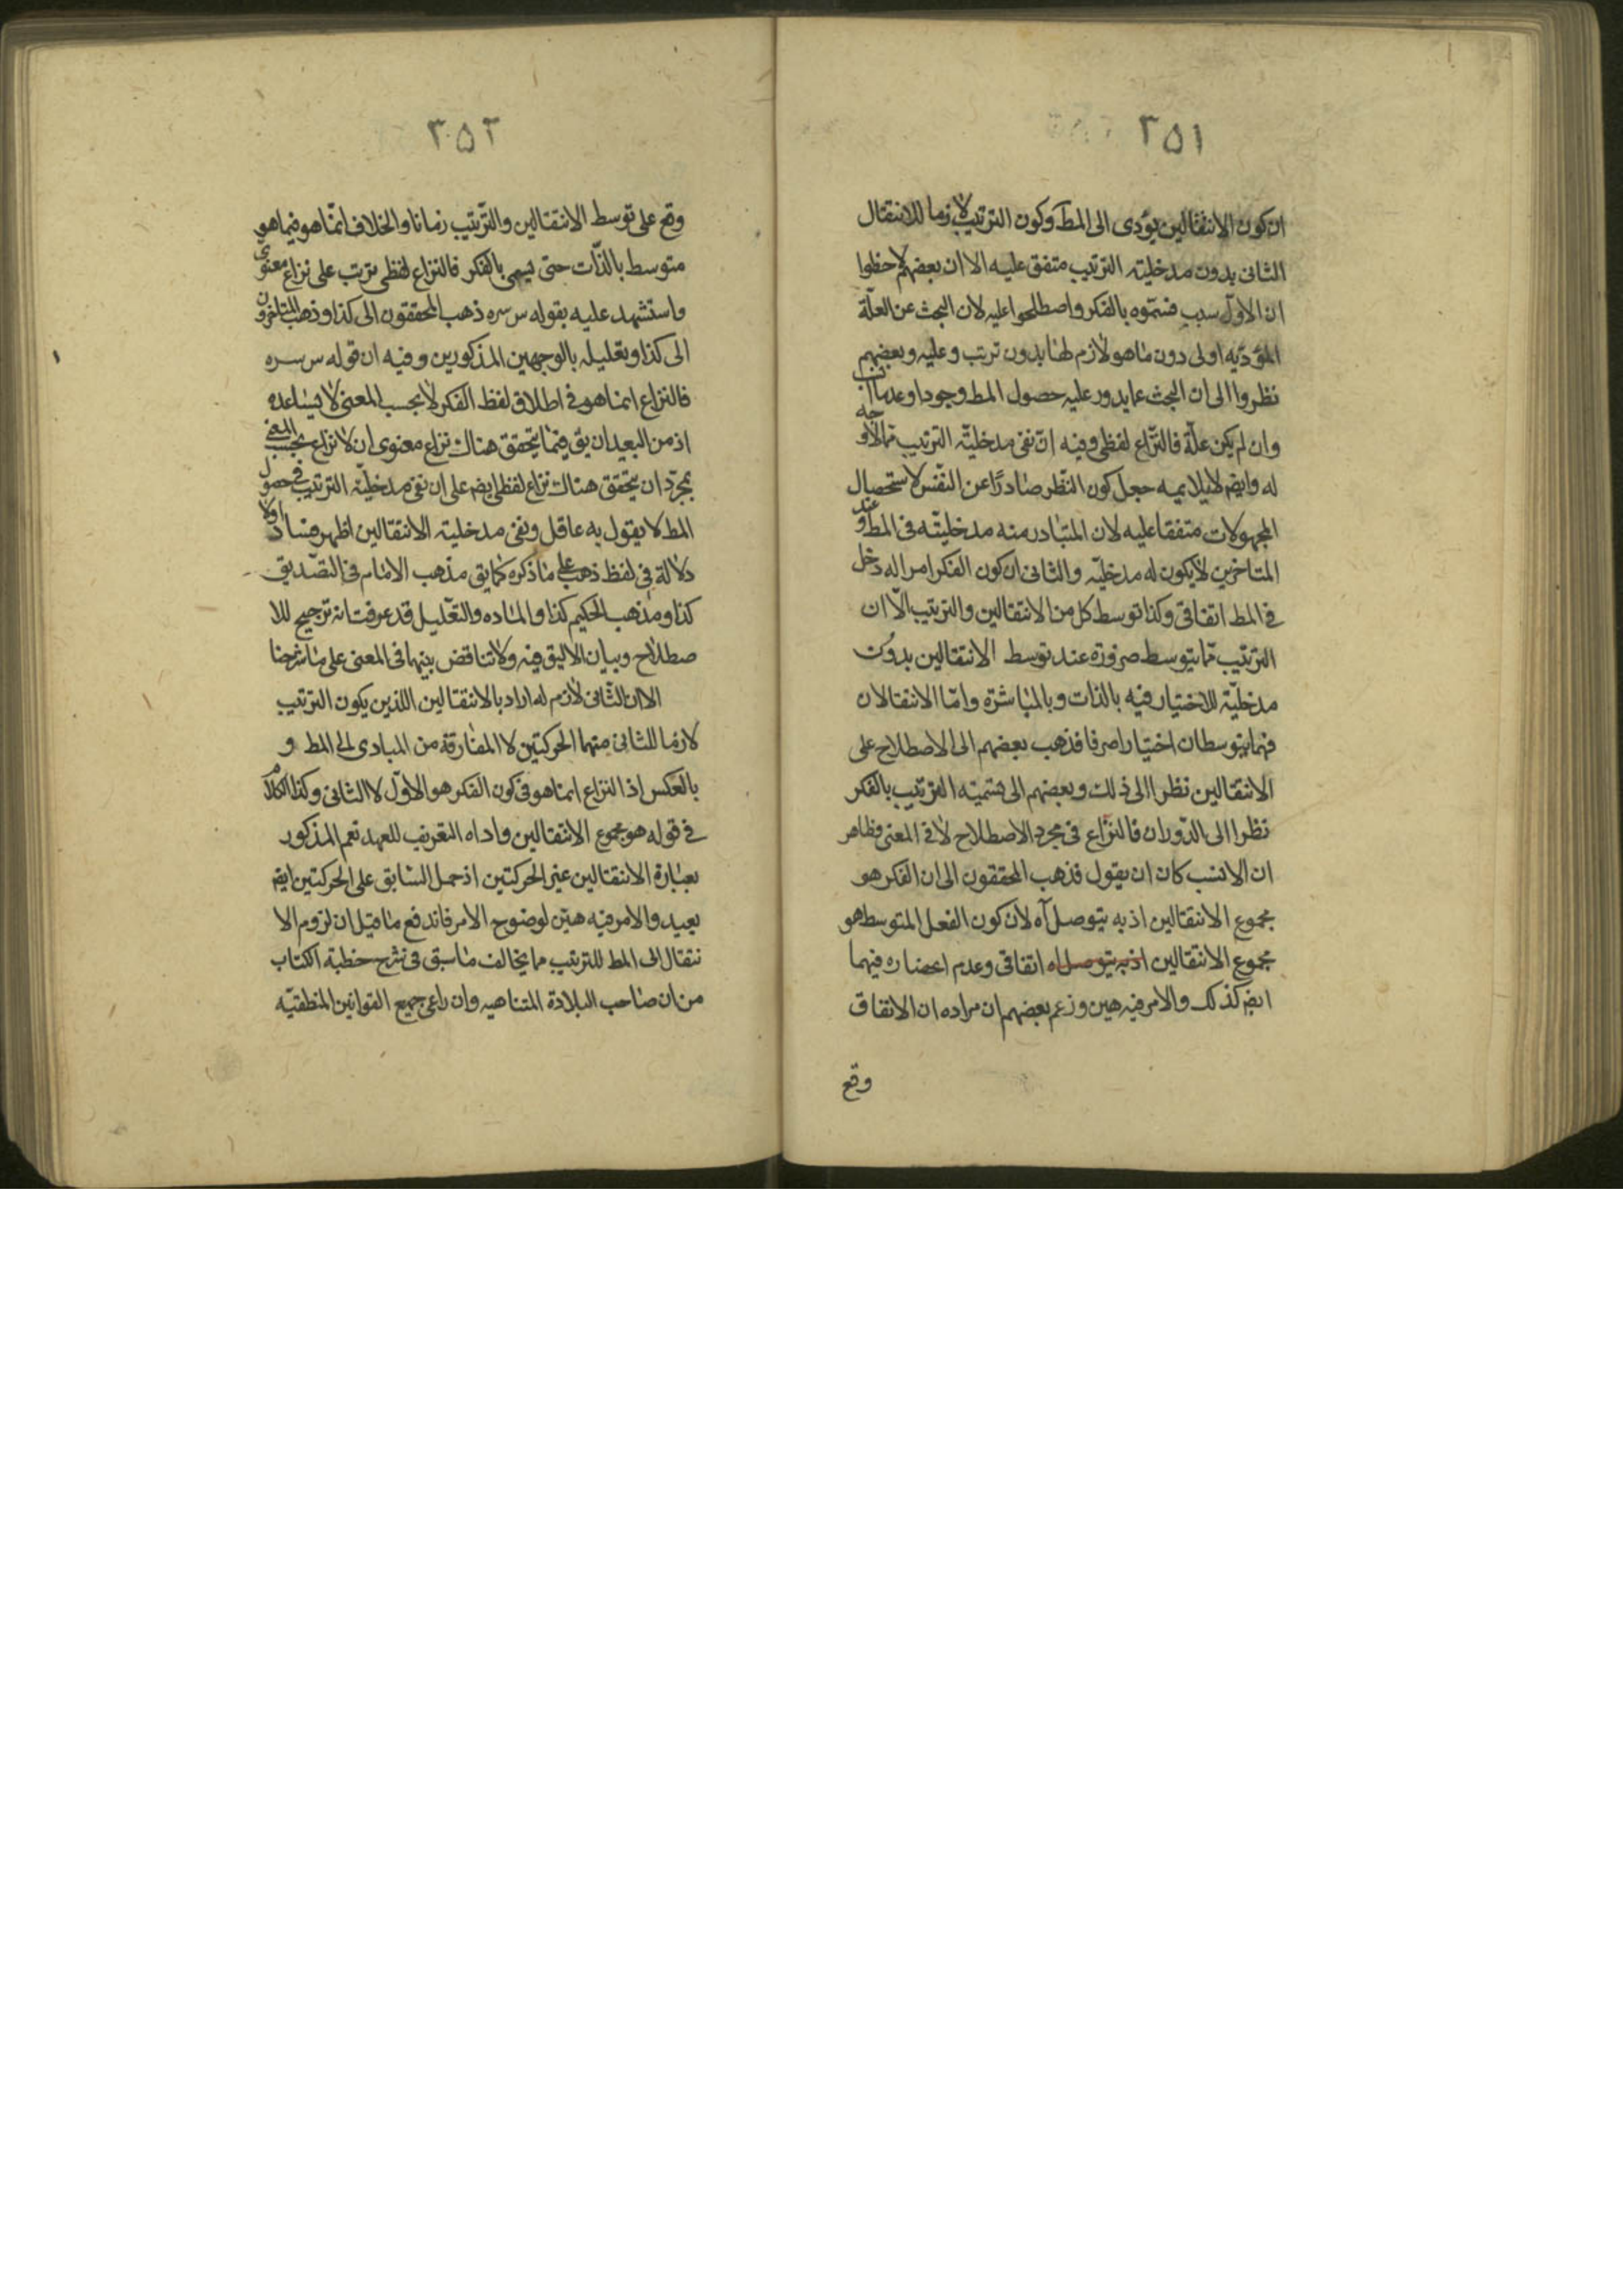 ٢٥١
ان كون الانتقالين يؤدى الى المط وكون الترتيب لازما للانتقال
الثانى بدون مدخليته الترتيب متفق عليه الا ان بعضهم لاحظوا
ان الاول سبب فسموه بالفكر واصطلحوا عليه لان البحث عن العلّة
المؤديه اولى دون ما هو لازم لها بدون ترتب وعليه وبعضهم
نظروا الى ان البحث عما يدور عليه حصول المط وجودا وعدما
وان لم يكن علّة فالنّزاع لفظى وفيه انّ نفى مدخليّة الترتيب مما لا وجه
له وايض لا يلايمه جعل كون النّظر صادرًا عن النّفس لاستحصال
المجهولات متفقا عليه لان المتبادر منه مدخليّته فى المط وعند
المتاخرين لا يكون له مدخليّه والثانى ان كون الفكر امرا له دخل
فى المط اتفاقى وكذا توسط كل من الانتقالين والترتيب الّا ان
الترتيب مما يتوسط ضرورة عند توسط الانتقالين بدون
مدخليّة للاختيار فيه بالذات وبالمباشرة وامّا الانتقالان
فهما يتوسطان اختيارا صرفا فذهب بعضهم الى الاصطلاح على
الانتقالين نظرا الى ذلك وبعضهم الى تسمية الترتيب بالفكر
نظرا الى الدّوران فالنزاع فى مجرد الاصطلاح لا فى المعنى وظاهر
ان الانسب كان ان يقول فذهب المحققون الى ان الفكر هو
مجموع الانتقالين اذ به يتوصل آه لان كون الفعل المتوسط هو
مجموع الانتقالين اذ به يتوصل اه اتفاقى وعدم انحصاره فيهما
ايض كذلك والامر فيه هين وزعم بعضهم ان مراده ان الاتفاق
وقع
٢٥٢
وقع على توسط الانتقالين والتّرتيب زمانا والخلاف انّما هو فيما هو
متوسط بالذّات حتى يسمى بالفكر فالنزاع لفظى ترتب على نزاع معنوى
واستشهد عليه بقوله س سره ذهب المحققون الى كذا وذهب المتاخرون
الى كذا وتعليله بالوجهين المذكورين وفيه ان قوله س سره
فالنزاع انما هو فى اطلاق لفظ الفكر لا بحسب المعنى لا يساعده
اذ من البعيد ان يق فيما يتحقق هناك نزاع معنوى ان لا نزاع بحسب المعنى
بمجرّد ان يتحقق هناك نزاع لفظى ايض على ان نفى مدخليّة الترتيب فى حصول
المط لا يقول به عاقل ونفى مدخلية الانتقالين اظهر فسادا ولا
دلالة فى لفظ ذهب على ما ذكره كما يق مذهب الامام فى التصّديق
كذا ومذهب الحكيم كذا والماده والتعّليل قد عرفت انه ترجيح للا
صطلاح وبيان الاليق فيه ولا تناقض بينهما فى المعنى على ما شرحنا
الا ان الثّانى لازم له اراد بالانتقالين اللذين يكون الترتيب
لازما للثانى منهما الحركتين لا المفارقة من المبادى الى المط و
بالعكس اذ النزاع انما هو فى كون الفكر هو الاوّل لا الثانى وكذا الكلام
فى قوله هو مجموع الانتقالين واداه التعريف للعهد نعم المذكور
بعبارة الانتقالين غير الحركتين اذ حمل السّابق على الحركتين ايض
بعيد والامر فيه هيّن لوضوح الامر فاندفع ما قيل ان لزوم الا
نتقال الى المط للترتيب مما يخالف ما سبق فى شرح خطبة الكتاب
من ان صاحب البلادة المتناهيه وان راعى جميع القوانين المنطقيّه